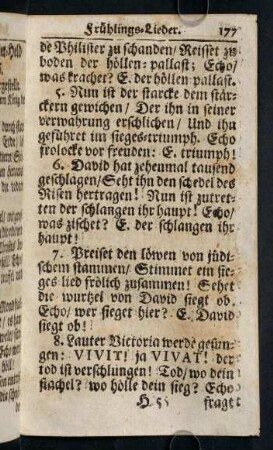 Frühlings-Lieder. 177
de Philister zu schanden/ Reisset zu
boden der höllen-pallast; Echo/
was krachet? E. der höllen pallast.
5. Nun ist der starcke dem stär-
ckern gewichen/ Der ihn in seiner
verwahrung erschlichen/ Und ihn
geführet im sieges-triumph. Echo
frolocke vor freuden: E. triumph!
6. David hat zehenmal tausend
geschlagen/ Seht ihn den schedel des
Risen hertragen! Nun ist zutret-
ten der schlangen ihr haupt! Echo/
was zischet? E. der schlangen ihr
haupt!
7. Preiset den löwen von jüdi-
schem stammen/ Stimmet ein sie-
ges lied frölich zusammen! Sehet
die wurtzel von David siegt ob.
Echo/ wer sieget hier? E. David
siegt ob!
8. Lauter Victoria werde gesun-
gen: VIVIT! ja VIVAT! der
tod ist verschlungen! Tod/ wo dein
stachel? wo hölle dein sieg? Echo
H 5 fragt